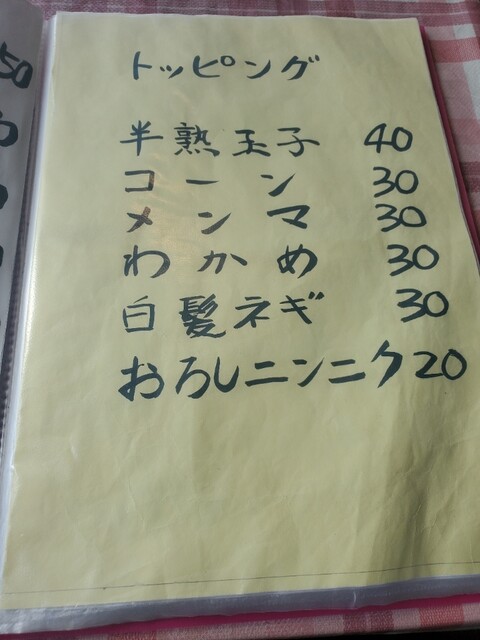 トッピング
半熟玉子 40
コーン 30
メンマ 30
わかめ 30
白髪ネギ 30
おろしニンニク 20
50